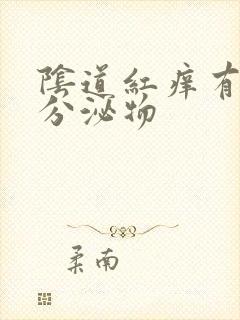 陰道紅痒有
分泌物
柔南